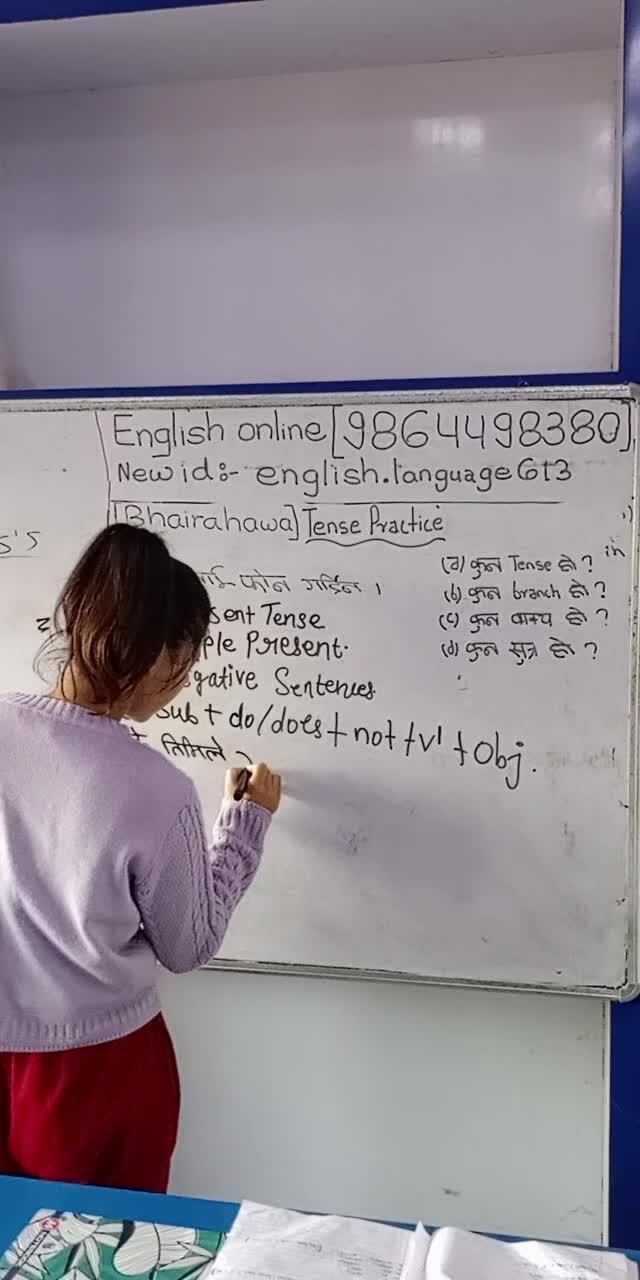 English online [9864498380]
New id:- english.language6t3
[Bhairahawa] Tense Practice
s's
फोन गर्दिन ।
sent Tense
ple Present.
gative Sentences.
Sub + do/does + not + v¹ + Obj.
तिमिले
(a) कुन Tense हो ? in
(b) कुन branch हो ?
(c) कुन वाक्य हो ?
(d) कुन सुत्र हो ?